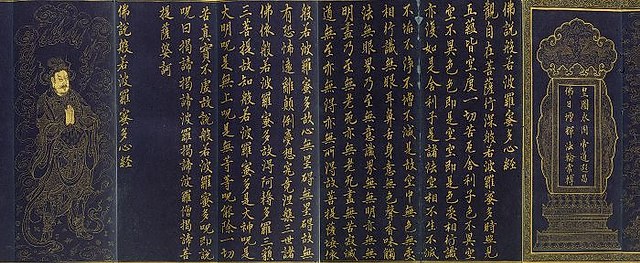 皇圖永固 帝道遐昌
佛日增輝 法輪常轉
佛說般若波羅蜜多心經
觀自在菩薩行深般若波羅蜜多時照見
五蘊皆空度一切苦厄舍利子色不異空
空不異色色即是空空即是色受想行識
亦復如是舍利子是諸法空相不生不滅
不垢不淨不增不減是故空中無色無受
想行識無眼耳鼻舌身意無色聲香味觸
法無眼界乃至無意識界無無明亦無無
明盡乃至無老死亦無老死盡無苦集滅
道無智亦無得以無所得故菩提薩埵依
般若波羅蜜多故心無罣礙無罣礙故無
有恐怖遠離顛倒夢想究竟涅槃三世諸
佛依般若波羅蜜多故得阿耨多羅三藐
三菩提故知般若波羅蜜多是大神呪是
大明呪是無上呪是無等等呪能除一切
苦真實不虛故說般若波羅蜜多呪即說
呪曰揭諦揭諦波羅揭諦波羅僧揭諦菩
提薩婆訶
佛說般若波羅蜜多心經